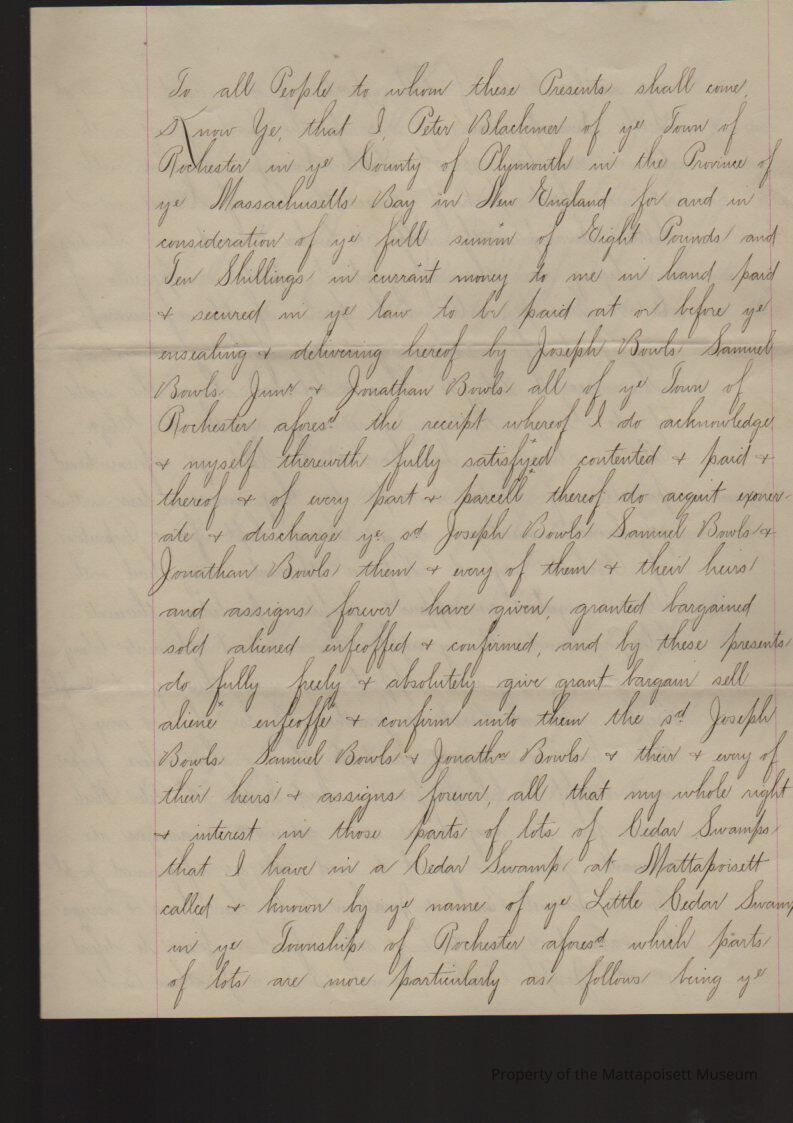 To all People to whom these Presents shall come,
Know Ye, that I, Peter Blackmer of ye Town of
Rochester in ye County of Plymouth in the Province of
ye Massachusetts Bay in New England for and in
consideration of ye full summ of Eight Pounds and
Ten Shillings in currant money to me in hand paid
& secured in ye law to be paid at or before ye
ensealing & delivering hereof by Joseph Bowls Samuel
Bowls Junr & Jonathan Bowls all of ye Town of
Rochester aforesd the receipt whereof I do acknowledge
& myself therewith fully satisfyed contented & paid &
thereof & of every part & parcell thereof do acquit exoner-
ate & discharge ye sd Joseph Bowls Samuel Bowls &
Jonathan Bowls them & every of them & their heirs
and assigns forever have given, granted bargained
sold aliened enfeoffed & confirmed, and by these presents
do fully freely & absolutely give grant bargain sell
aliene enfeoffe & confirm unto them the sd Joseph
Bowls Samuel Bowls & Jonathn Bowls & their & every of
their heirs & assigns forever, all that my whole right
& interest in those parts of lots of Cedar Swamps
that I have in a Cedar Swamp at Mattapoisett
called & known by ye name of ye Little Cedar Swamp
in ye Township of Rochester aforesd which parts
of lots are more particularly as follows being ye
Property of the Mattapoisett Museum